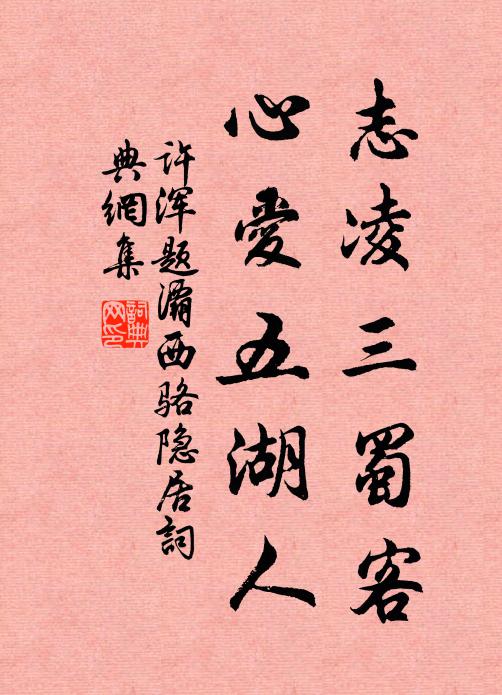 志凌三蜀客
心愛五湖人
许浑题灞西骆隐居詞
典網集
詞典网印